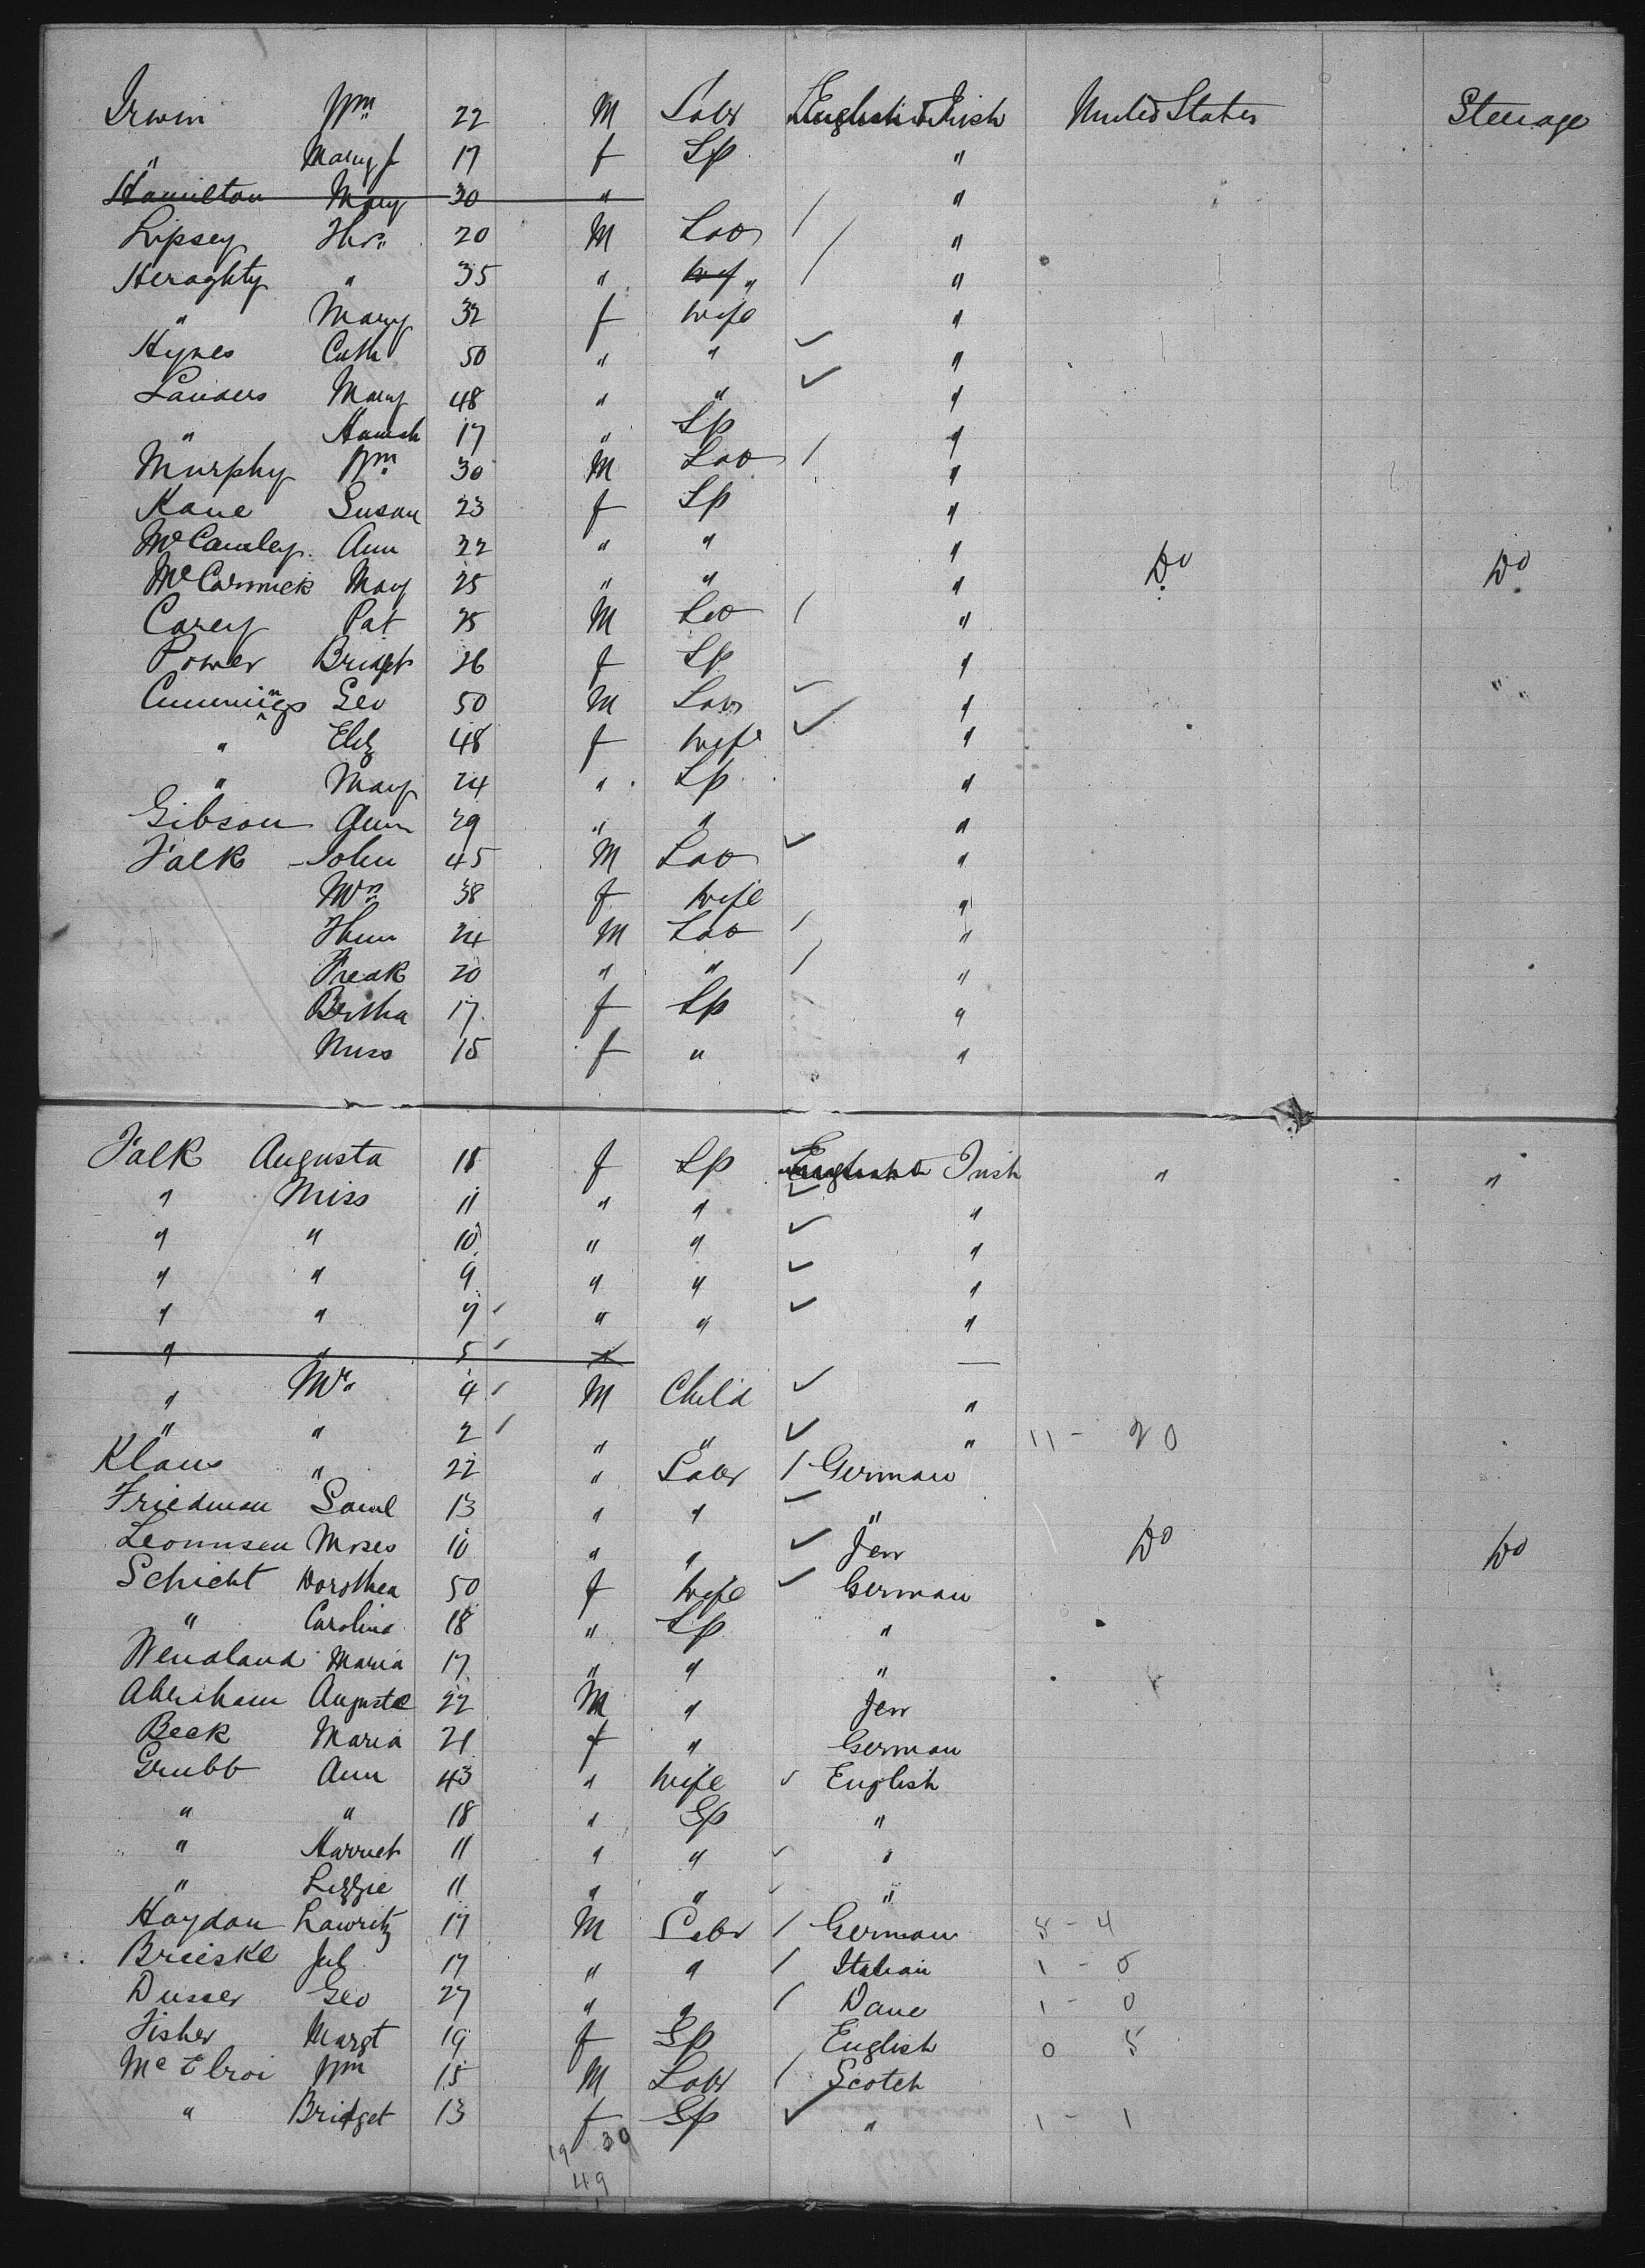 Irwin Wm 22 M Labr English & Irish United States Steerage
" Mary J 17 f Sp "
Hamilton Mary 30 " "
Lipsey Thos 20 M Lab / "
Heraghty " 35 " Wif " / "
" Mary 32 f Wife "
Hynes Cath 50 " " ✓ "
Landers Mary 48 " " ✓ "
" Hannah 17 " Sp "
Murphy Wm 30 M Lab / "
Kane Susan 23 f Sp "
McCamley Ann 22 " " "
McCormick Mary 25 " " " Do Do
Carey Pat 25 M Lab / "
Power Bridget 26 f Sp "
Cummings Geo 50 M Labr ✓ "
" Eliz 48 f Wife ✓ "
" Mary 24 " Sp "
Gibson Ann 29 " " "
Falk John 45 M Lab ✓ "
Mrs 38 f Wife "
24 M Lab / "
Fredk 20 " " / "
Bertha 17 f Sp "
Miss 15 f " "
Falk Augusta 18 f Sp English & Irish " "
" Miss 11 " " ✓ "
" " 10 " " ✓ "
" " 9 " " ✓ "
" " 7 " " ✓ "
" " 5
" Mr 4 M Child ✓ "
" " 2 " " ✓ " 11 - 20
Klaus " 22 " Labr / German
Friedman Saml 13 " " ✓ "
Moses 10 " " ✓ Jew Do Do
Schicht Dorothea 50 f Wife ✓ German
" Carolina 18 " Sp "
Wendland Maria 17 " " "
Abraham Auguste 22 M " Jew
Beck Maria 21 f " German
Grubb Ann 43 " Wife ✓ English
" " 18 " Sp "
" Harriet 11 " " ✓ "
" Lizzie 11 " " ✓ "
Haydan Lawritz 17 M Labr / German 5 - 4
Brieske Jul 17 " " / Italian 1 - 0
Dusser Geo 27 " " / Dane 1 - 0
Fisher Margt 19 f Sp English 0 5
McElroi Wm 15 M Labr / Scotch
" Bridget 13 f Sp ✓ " 1 - 1
19 30
49